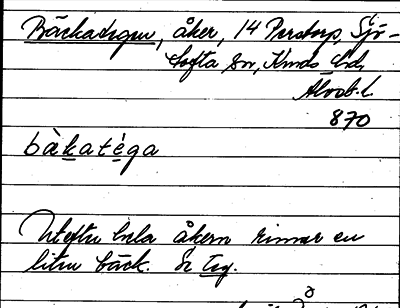 Bäckategen, åker, 14 Perstorp, Sjö-
tofta sn, Kinds hd,
Älvsb. l.
870
bàkatèga
Utefter hela åkern rinner en
liten bäck. Se Teg.